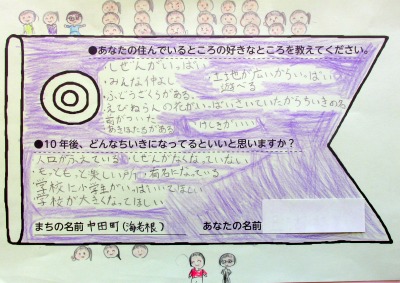 ●あなたの住んでいるところの好きなところを教えてください。
しぜんがいっぱい
・みんな仲よし
・土地が広いからいっぱい遊べる
ふどうこうらがある。
えびねらんの花がいっぱいさいていたからちいきの名前がついた
あきほたるがある
けしきがいい
●10年後、どんなちいきになってるといいと思いますか？
人口がふえている
しぜんがなくなっていない
もっともっと楽しい所
有名になっている
学校に小学生がいっぱいいてほしい
学校が大きくなってほしい
まちの名前 中田町(海老根)
あなたの名前